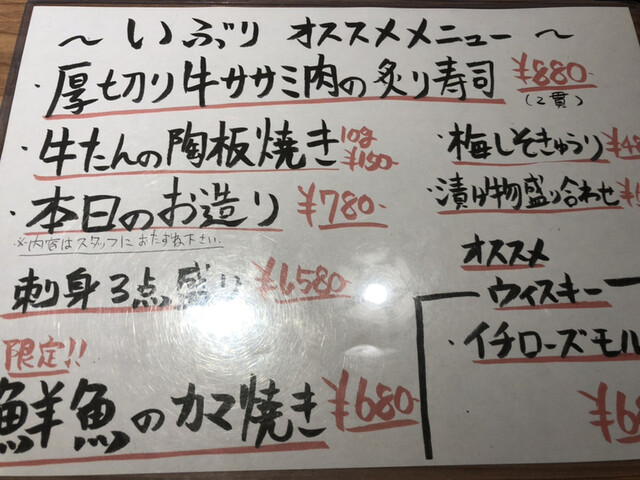 ～いぶり オススメメニュー～
・厚切り牛ササミ肉の炙り寿司 ¥880-
(2貫)
・牛たんの陶板焼き 10g ¥150-
・本日のお造り ¥780-
※内容はスタッフにおたずね下さい。
刺身3点盛り
限定!!
鮮魚のカマ焼き ¥680-
・梅しそきゅうり
・漬け物盛り合わせ
オススメ
ウィスキー
・イチローズモル